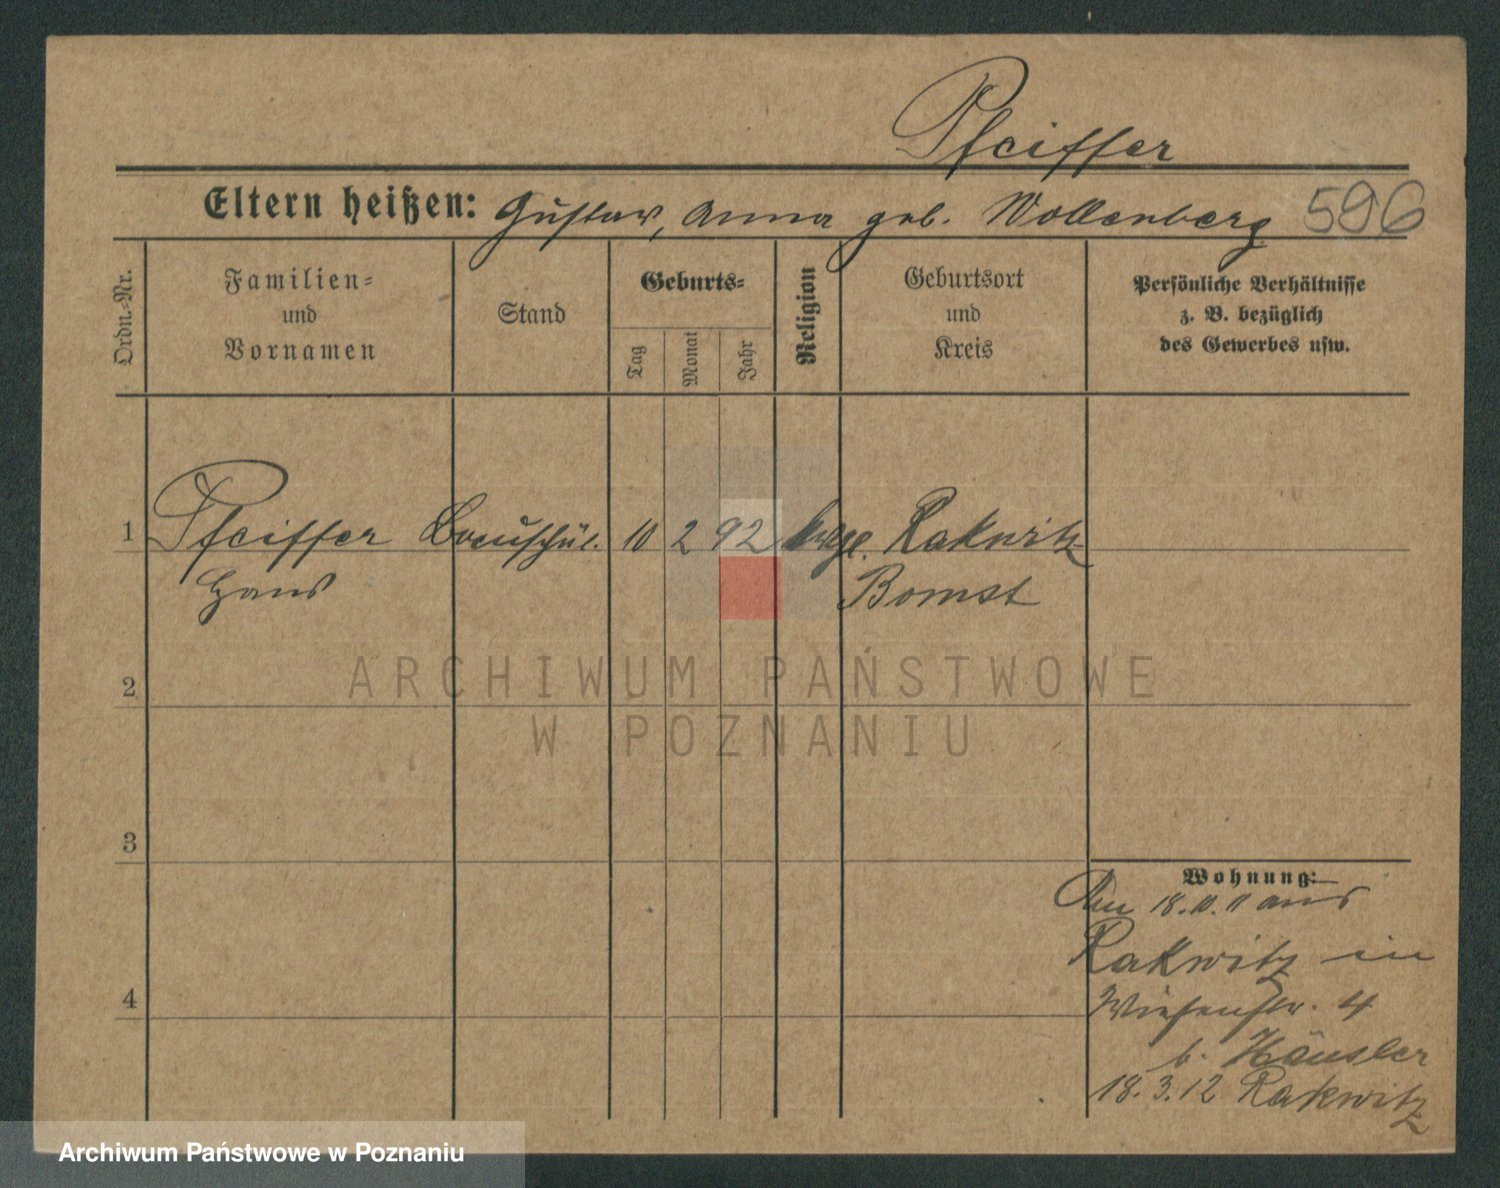 Pfeiffer
Eltern heißen: Gustav, Anna geb. Wollenberg 596
Ordn.-Nr.
Familien-
und
Vornamen
Stand
Geburts-
Tag
Monat
Jahr
Religion
Geburtsort
und
Kreis
Persönliche Verhältnisse
z. B. bezüglich
des Gewerbes usw.
1 Pfeiffer Bauschül. 10 2 92 evgl. Rakwitz
Hans Bomst
2
ARCHIWUM PAŃSTWOWE
W POZNANIU
3
Wohnung:
18.10.11 aus
Rakwitz in
4 Wiesenstr. 4
b. Häusler
18.3.12 Rakwitz
Archiwum Państwowe w Poznaniu